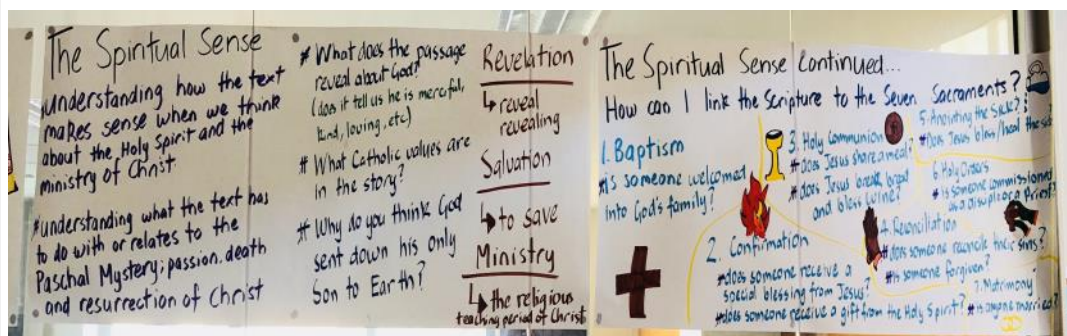 The Spiritual Sense
Understanding how the text
makes sense when we think
about the Holy Spirit and the
ministry of Christ
#understanding what the text has
to do with or relates to the
Paschal Mystery; passion, death
and resurrection of Christ
# What does the passage
reveal about God?
(does it tell us he is merciful,
kind, loving, etc)
# What Catholic values are
in the story?
# Why do you think God
sent down his only
Son to Earth?
Revelation
↳ reveal
revealing
Salvation
↳ to save
Ministry
↳ the religious
teaching period of Christ
The Spiritual Sense Continued...
How can I link the Scripture to the Seven Sacraments?
1. Baptism
#is someone welcomed
into God's family?
2. Confirmation
#does someone receive a
special blessing from Jesus?
#does someone receive a gift from the Holy Spirit?
3. Holy Communion
#does Jesus share a meal?
#does Jesus break bread
and bless wine?
4. Reconciliation
#does someone reconcile their sins?
#is someone forgiven?
5. Anointing the Sick?
#Does Jesus bless/heal the sick
6. Holy Orders
#is someone commissioned
as a disciple or a Priest?
7. Matrimony
#is anyone married?